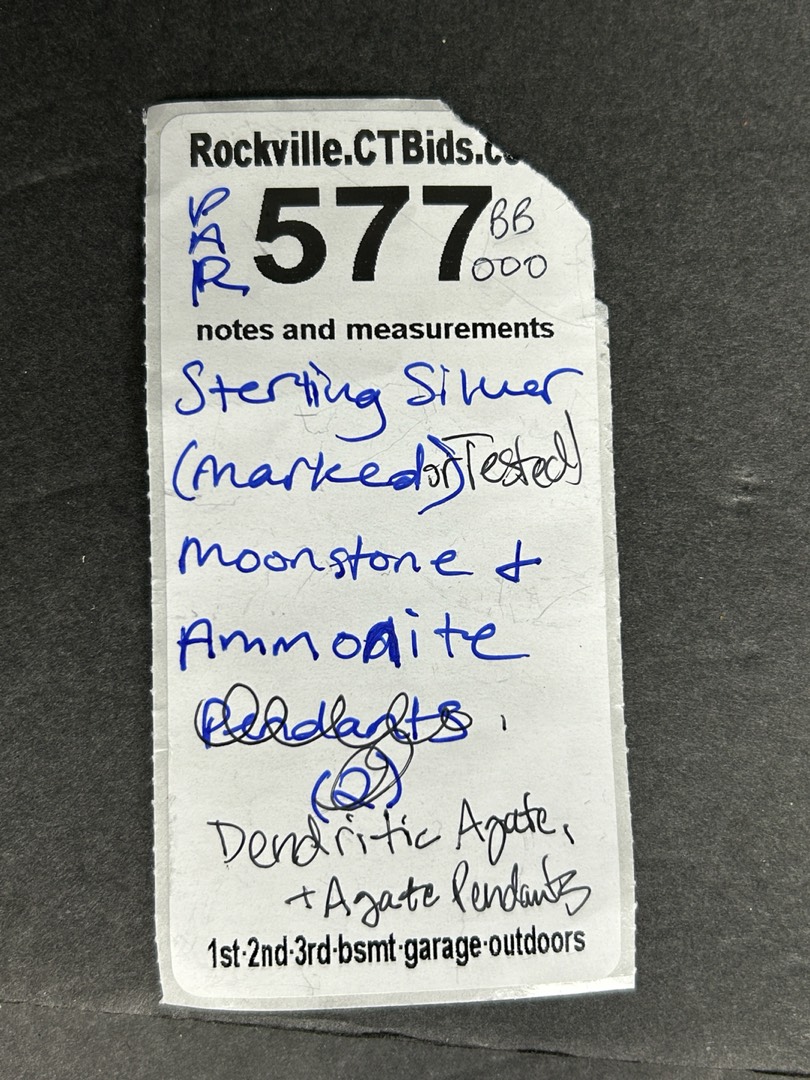 Rockville.CTBids.c
PAR 577 BB
000
notes and measurements
Sterling Silver
(Marked) or Tested)
Moonstone +
Ammonite
Pendants,
(2)
Dendritic Agate,
+ Agate Pendants
1st·2nd·3rd·bsmt·garage·outdoors